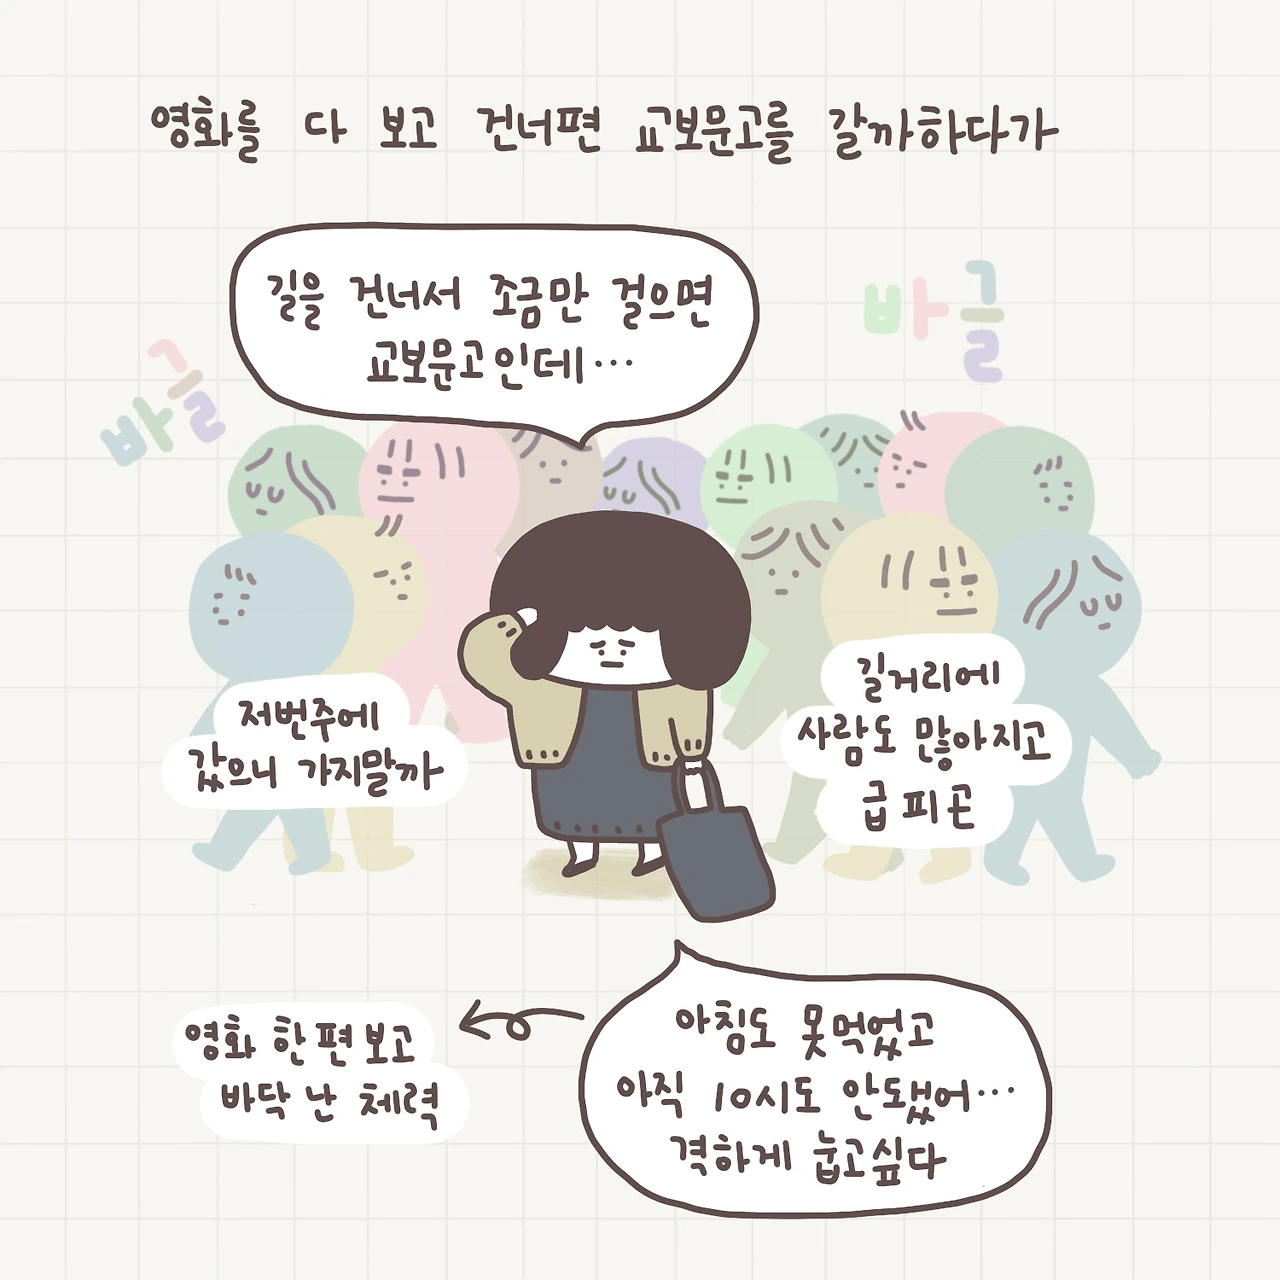 영화를 다 보고 건너편 교보문고를 갈까하다가
길을 건너서 조금만 걸으면
교보문고인데...
바글
바글
저번주에
갔으니 가지말까
길거리에
사람도 많아지고
급 피곤
아침도 못먹었고
아직 10시도 안됐어...
격하게 눕고싶다
영화 한편보고
바닥 난 체력